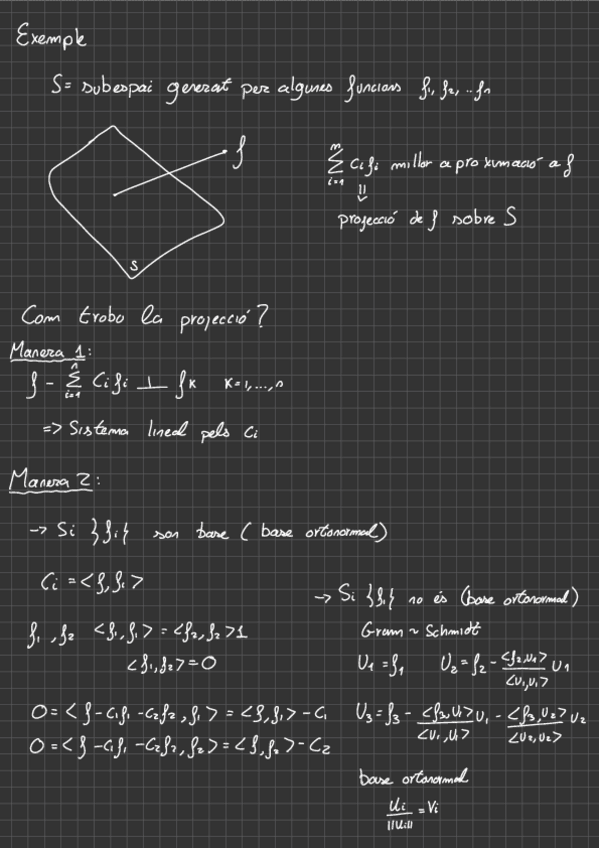 Exemple
S= subespai generat per algunes funcions f₁, f₂, .. fn
f
S
n
∑ Ci fi millor aproximació a f
i=1
⇓
projecció de f sobre S
Com trobo la projecció?
Manera 1:
f - ∑ⁿᵢ₌₁ Ci fi ⊥ fK K=1,...,n
=> Sistema lineal pels Ci
Manera 2:
-> Si {fi} son base (base ortonormal)
Ci = <f, fi>
f₁, f₂ <f₁, f₁> = <f₂, f₂> 1
<f₁, f₂> = 0
0 = <f - C₁f₁ - C₂f₂, f₁> = <f, f₁> - C₁
0 = <f - C₁f₁ - C₂f₂, f₂> = <f, f₂> - C₂
-> Si {fi} no és (base ortonormal)
Gram ~ Schmidt
U₁ = f₁ U₂ = f₂ - <f₂,U₁>/<U₁,U₁> U₁
U₃ = f₃ - <f₃,U₁>/<U₁,U₁> U₁ - <f₃,U₂>/<U₂,U₂> U₂
base ortonormal
Ui/||Ui|| = Vi